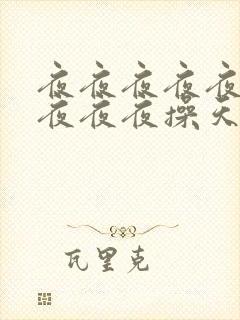 夜夜夜夜夜
夜夜夜操天
瓦里克